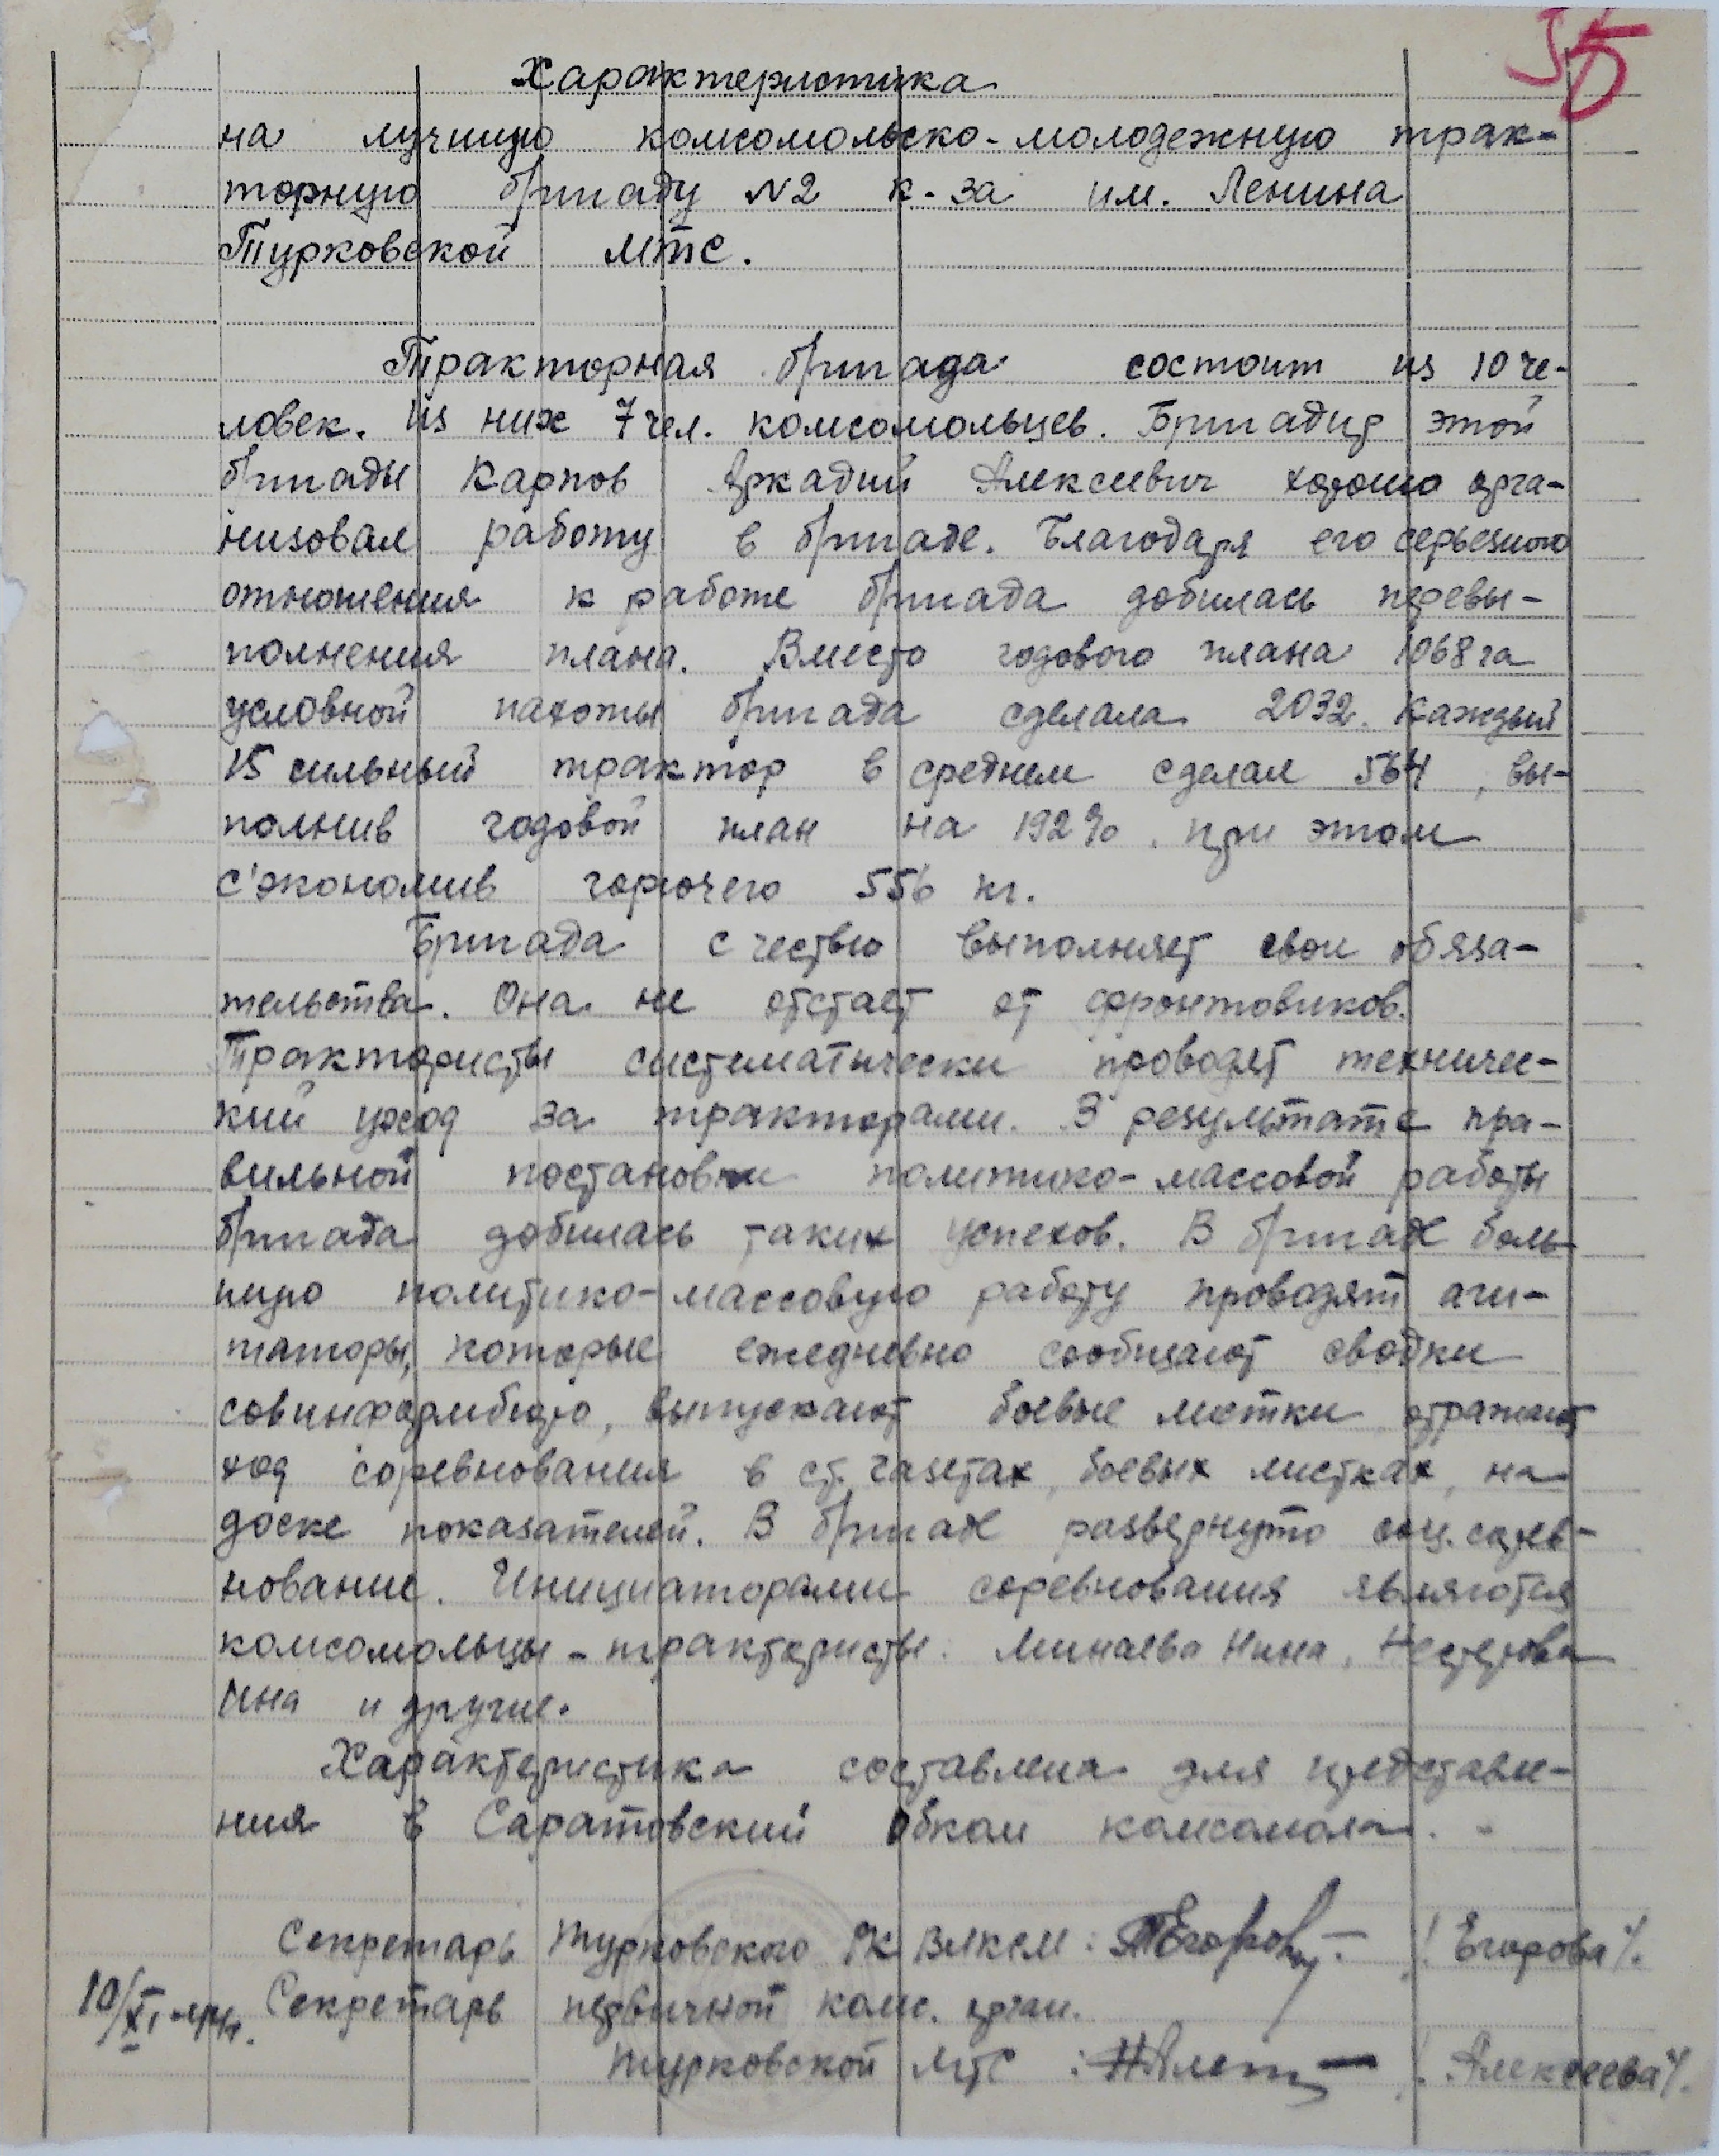 55
Характеристика
на лучшую комсомольско-молодежную трак-
торную бригаду №2 к-за им. Ленина
Турковской МТС.
Тракторная бригада состоит из 10 че-
ловек. Из них 7 чел. комсомольцев. Бригадир этой
бригады Карпов Аркадий Алексеевич хорошо орга-
низовал работу в бригаде. Благодаря его серьезного
отношения к работе бригада добилась перевы-
полнения плана. Вместо годового плана 1068 га
условной пахоты бригада сделала 2032. Каждый
15 сильный трактор в среднем сделал 564, вы-
полнив годовой план на 192%. при этом
с'экономив горючего 556 кг.
Бригада с честью выполняет свои обяза-
тельства. Она не отстает от фронтовиков.
Трактористы систематически проводят техничес-
кий уход за тракторами. В результате пра-
вильной постановки политико-массовой работы
бригада добилась таких успехов. В бригаде боль-
шую политико-массовую работу проводят аги-
таторы, которые ежедневно сообщают сводки
совинформбюро, выпускают боевые листки, отражают
ход соревнования в ст. газетах, боевых листках, на
доске показателей. В бригаде развернуто соц. сорев-
нование. Инициаторами соревнования являются
комсомольцы - трактористы: Минаева Нина, Нестерова
Ина и другие.
Характеристика составлена для представле-
ния в Саратовский обком комсомола. -
Секретарь Турковского РК ВЛКСМ: ТЕгорова /Егорова/.
10/XI-44г. Секретарь первичной комс. орган.
Турковской МТС: /Алексеева/.